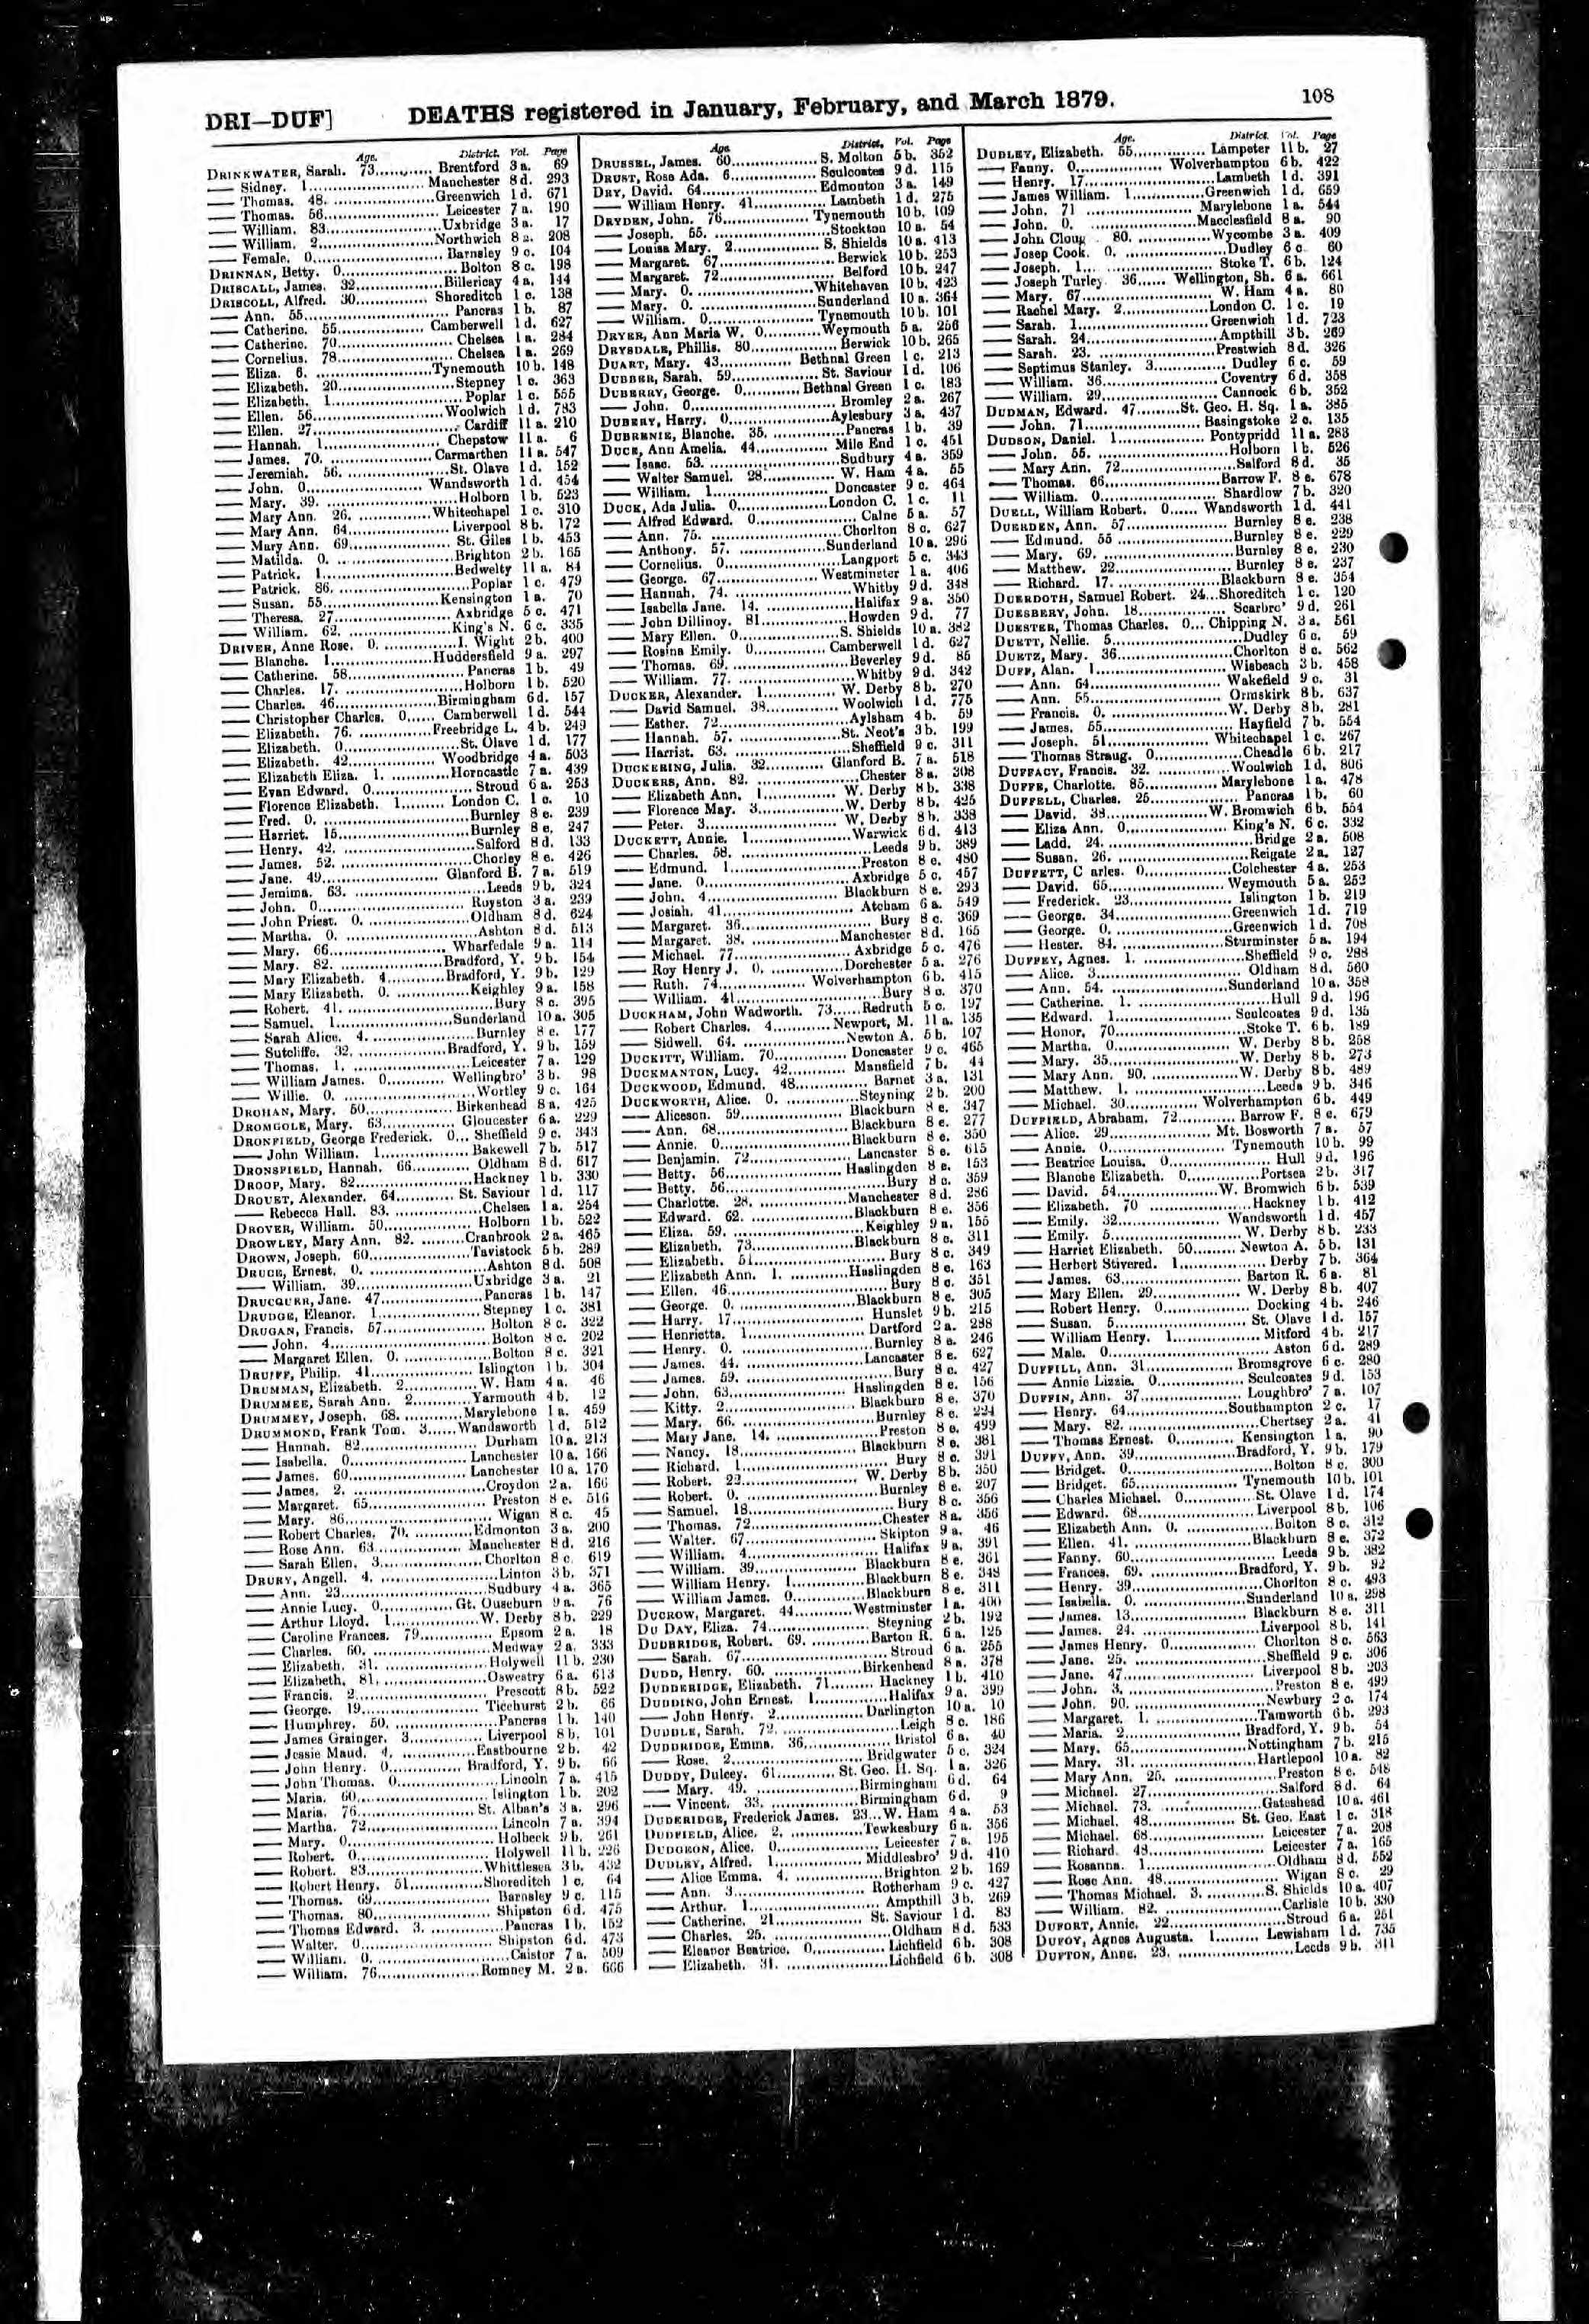 DRI—DUF] DEATHS registered in January, February, and March 1879. 108
Age. District. Vol. Page
DRINKWATER, Sarah. 73......... Brentford 3 a. 69
— Sidney. 1.................. Manchester 8 d. 293
— Thomas. 48. ...............Greenwich 1 d. 671
— Thomas. 56................. Leicester 7 a. 190
— William. 83................Uxbridge 3 a. 17
— William. 2................Northwich 8 a. 208
— Female. 0.................. Barnsley 9 c. 104
DRINNAN, Betty. 0................. Bolton 8 c. 198
DRISCALL, James. 32..............Billericay 4 a. 144
DRISCOLL, Alfred. 30............ Shoreditch 1 c. 138
— Ann. 55..................... Pancras 1 b. 87
— Catherine. 55.............. Camberwell 1 d. 627
— Catherine. 70................. Chelsea 1 a. 284
— Cornelius. 78................. Chelsea 1 a. 269
— Eliza. 6. ................Tynemouth 10 b. 148
— Elizabeth. 20................Stepney 1 c. 363
— Elizabeth. 1.................. Poplar 1 c. 555
— Ellen. 56...................Woolwich 1 d. 783
— Ellen. 27................... Cardiff 11 a. 210
— Hannah. 1................. Chepstow 11 a. 6
— James. 70................ Carmarthen 11 a. 547
— Jeremiah. 56................St. Olave 1 d. 152
— John. 0.................. Wandsworth 1 d. 454
— Mary. 39. ....................Holborn 1 b. 523
— Mary Ann. 26. .............Whitechapel 1 c. 310
— Mary Ann. 64................ Liverpool 8 b. 172
— Mary Ann. 69................. St. Giles 1 b. 453
— Matilda. 0. .................Brighton 2 b. 165
— Patrick. 1..................Bedwelty 11 a. 84
— Patrick. 86. ..................Poplar 1 c. 479
— Susan. 55..................Kensington 1 a. 70
— Theresa. 27................. Axbridge 5 c. 471
— William. 62. ...............King's N. 6 c. 335
DRIVER, Anne Rose. 0. ............I. Wight 2 b. 400
— Blanche. 1................Huddersfield 9 a. 297
— Catherine. 58................. Pancras 1 b. 49
— Charles. 17. .................Holborn 1 b. 520
— Charles. 46................Birmingham 6 d. 157
— Christopher Charles. 0...... Camberwell 1 d. 544
— Elizabeth. 76. ............Freebridge L. 4 b. 249
— Elizabeth. 0.................St. Olave 1 d. 177
— Elizabeth. 42............. Woodbridge 4 a. 503
— Elizabeth Eliza. 1. ..........Horncastle 7 a. 439
— Evan Edward. 0................ Stroud 6 a. 253
— Florence Elizabeth. 1......... London C. 1 c. 10
— Fred. 0. .....................Burnley 8 e. 239
— Harriet. 15...................Burnley 8 e. 247
— Henry. 42. ....................Salford 8 d. 133
— James. 52. ....................Chorley 8 e. 426
— Jane. 49................ Glanford B. 7 a. 519
— Jemima. 63. ....................Leeds 9 b. 324
— John. 0....................... Royston 3 a. 239
— John Priest. 0. ...............Oldham 8 d. 624
— Martha. 0. ....................Ashton 8 d. 513
— Mary. 66................... Wharfedale 9 a. 114
— Mary. 82. ................Bradford, Y. 9 b. 154
— Mary Elizabeth. 4..........Bradford, Y. 9 b. 129
— Mary Elizabeth. 0. ...........Keighley 9 a. 158
— Robert. 41. .....................Bury 8 c. 395
— Samuel. 1..................Sunderland 10 a. 305
— Sarah Alice. 4. ..............Burnley 8 e. 177
— Sutcliffe. 32. ............Bradford, Y. 9 b. 159
— Thomas. 1. ..................Leicester 7 a. 129
— William James. 0........... Wellingbro' 3 b. 98
— Willie. 0. ................... Wortley 9 c. 164
DROHAN, Mary. 50.............. Birkenhead 8 a. 425
DROMGOLE, Mary. 63............ Gloucester 6 a. 229
DRONFIELD, George Frederick. 0... Sheffield 9 c. 343
— John William. 1............. Bakewell 7 b. 517
DRONSFIELD, Hannah. 66........... Oldham 8 d. 617
DROOP, Mary. 82..................Hackney 1 b. 330
DROUET, Alexander. 64........... St. Saviour 1 d. 117
— Rebecca Hall. 83. ..............Chelsea 1 a. 254
DROVER, William. 50............. Holborn 1 b. 522
DROWLEY, Mary Ann. 82. .........Cranbrook 2 a. 465
DROWN, Joseph. 60...............Tavistock 5 b. 289
DRUCE, Ernest. 0. ................Ashton 8 d. 508
— William. 39...................Uxbridge 3 a. 21
DRUCQUER, Jane. 47................Pancras 1 b. 147
DRUDGE, Eleanor. 1................Stepney 1 c. 381
DRUGAN, Francis. 57............... Bolton 8 c. 322
— John. 4........................Bolton 8 c. 202
— Margaret Ellen. 0. .............Bolton 8 c. 321
DRUIFF, Philip. 41................ Islington 1 b. 304
DRUMMAN, Elizabeth. 2............W. Ham 4 a. 46
DRUMMEE, Sarah Ann. 2...........Yarmouth 4 b. 12
DRUMMEY, Joseph. 68. ..........Marylebone 1 a. 459
DRUMMOND, Frank Tom. 3......Wandsworth 1 d. 512
— Hannah. 82................... Durham 10 a. 213
— Isabella. 0.................. Lanchester 10 a. 166
— James. 60................... Lanchester 10 a. 170
— James. 2. ....................Croydon 2 a. 166
— Margaret. 65.................. Preston 8 e. 516
— Mary. 86....................... Wigan 8 c. 45
— Robert Charles. 70. ..........Edmonton 3 a. 200
— Rose Ann. 63............... Manchester 8 d. 216
— Sarah Ellen. 3................Chorlton 8 c. 619
DRURY, Angell. 4. .................Linton 3 b. 371
— Ann. 23......................Sudbury 4 a. 365
— Annie Lucy. 0............Gt. Ouseburn 9 a. 76
— Arthur Lloyd. 1.............W. Derby 8 b. 229
— Caroline Frances. 79............ Epsom 2 a. 18
— Charles. 60. .................Medway 2 a. 333
— Elizabeth. 31. ..............Holywell 11 b. 230
— Elizabeth. 81. ...............Oswestry 6 a. 613
— Francis. 2................... Prescott 8 b. 522
— George. 19.................. Ticehurst 2 b. 66
— Humphrey. 50. ................Pancras 1 b. 140
— James Grainger. 3........... Liverpool 8 b. 101
— Jessie Maud. 4. ............Eastbourne 2 b. 42
— John Henry. 0............ Bradford, Y. 9 b. 66
— John Thomas. 0................Lincoln 7 a. 415
— Maria. 60.................... Islington 1 b. 202
— Maria. 76................. St. Alban's 3 a. 296
— Martha. 72.................... Lincoln 7 a. 394
— Mary. 0...................... Holbeck 9 b. 261
— Robert. 0................... Holywell 11 b. 226
— Robert. 83................Whittlesea 3 b. 432
— Robert Henry. 51............Shoreditch 1 c. 64
— Thomas. 69................... Barnsley 9 c. 115
— Thomas. 80................... Shipston 6 d. 475
— Thomas Edward. 3. ............Pancras 1 b. 152
— Walter. 0.................... Shipston 6 d. 473
— William. 0. ..................Caistor 7 a. 509
— William. 76................Romney M. 2 a. 666
Age. District. Vol. Page
DRUSSEL, James. 60................ S. Molton 5 b. 352
DRUST, Rosa Ada. 6............... Sculcoates 9 d. 115
DRY, David. 64...................Edmonton 3 a. 149
— William Henry. 41............. Lambeth 1 d. 275
DRYDEN, John. 76............... Tynemouth 10 b. 109
— Joseph. 55. ..................Stockton 10 a. 54
— Louisa Mary. 2............... S. Shields 10 a. 413
— Margaret. 67.................. Berwick 10 b. 253
— Margaret. 72.................. Belford 10 b. 247
— Mary. 0. ..................Whitehaven 10 b. 423
— Mary. 0. ...................Sunderland 10 a. 364
— William. 0................. Tynemouth 10 b. 101
DRYER, Ann Maria W. 0..........Weymouth 5 a. 256
DRYSDALE, Phillis. 80..............Berwick 10 b. 265
DUART, Mary. 43............. Bethnal Green 1 c. 213
DUBBER, Sarah. 59............... St. Saviour 1 d. 106
DUBERRY, George. 0........... Bethnal Green 1 c. 183
— John. 0...................... Bromley 2 a. 267
DUBERY, Harry. 0................Aylesbury 3 a. 437
DUBRENIE, Blanche. 35. ............Pancras 1 b. 39
DUCE, Ann Amelia. 44............. Mile End 1 c. 451
— Isaac. 53. ....................Sudbury 4 a. 359
— Walter Samuel. 28............. W. Ham 4 a. 55
— William. 1.................. Doncaster 9 c. 464
DUCK, Ada Julia. 0...............London C. 1 c. 11
— Alfred Edward. 0................ Calne 5 a. 57
— Ann. 75......................Chorlton 8 c. 627
— Anthony. 57. ..............Sunderland 10 a. 296
— Cornelius. 0................. Langport 5 c. 343
— George. 67................Westminster 1 a. 406
— Hannah. 74. ...................Whitby 9 d. 348
— Isabella Jane. 14. ............Halifax 9 a. 350
— John Dillinoy. 81............. Howden 9 d. 77
— Mary Ellen. 0............... S. Shields 10 a. 382
— Rosina Emily. 0............ Camberwell 1 d. 627
— Thomas. 69. ..................Beverley 9 d. 85
— William. 77. ..................Whitby 9 d. 342
DUCKER, Alexander. 1............ W. Derby 8 b. 270
— David Samuel. 38............. Woolwich 1 d. 775
— Esther. 72................... Aylsham 4 b. 59
— Hannah. 57. .................St. Neot's 3 b. 199
— Harriet. 63. .................Sheffield 9 c. 311
DUCKERING, Julia. 32............ Glanford B. 7 a. 518
DUCKERS, Ann. 82. .................Chester 8 a. 308
— Elizabeth Ann. 1............. W. Derby 8 b. 338
— Florence May. 3...............W. Derby 8 b. 425
— Peter. 3..................... W. Derby 8 b. 338
DUCKETT, Annie. 1................Warwick 6 d. 413
— Charles. 58. ...................Leeds 9 b. 389
— Edmund. 1......................Preston 8 e. 480
— Jane. 0.......................Axbridge 5 c. 457
— John. 4..................... Blackburn 8 e. 293
— Josiah. 41.................... Atcham 6 a. 549
— Margaret. 36.................... Bury 8 c. 369
— Margaret. 38. ..............Manchester 8 d. 165
— Michael. 77.................. Axbridge 5 c. 476
— Roy Henry J. 0. .............Dorchester 5 a. 276
— Ruth. 74................ Wolverhampton 6 b. 415
— William. 41.....................Bury 8 c. 370
DUCKHAM, John Wadworth. 73......Redruth 5 c. 197
— Robert Charles. 4.......... Newport, M. 11 a. 135
— Sidwell. 64. ...............Newton A. 5 b. 107
DUCKITT, William. 70............. Doncaster 9 c. 465
DUCKMANTON, Lucy. 42............ Mansfield 7 b. 44
DUCKWOOD, Edmund. 48.............. Barnet 3 a. 131
DUCKWORTH, Alice. 0. .............Steyning 2 b. 200
— Aliceson. 59................ Blackburn 8 e. 347
— Ann. 68.................... Blackburn 8 e. 277
— Annie. 0....................Blackburn 8 e. 350
— Benjamin. 72................ Lancaster 8 e. 615
— Betty. 56.................. Haslingden 8 e. 153
— Betty. 56.......................Bury 8 c. 359
— Charlotte. 28. .............Manchester 8 d. 286
— Edward. 62. ................Blackburn 8 e. 356
— Eliza. 59. ................... Keighley 9 a. 155
— Elizabeth. 73................Blackburn 8 e. 311
— Elizabeth. 51................... Bury 8 c. 349
— Elizabeth Ann. 1. ..........Haslingden 8 e. 163
— Ellen. 46.......................Bury 8 c. 351
— George. 0. .................Blackburn 8 e. 305
— Harry. 17.................... Hunslet 9 b. 215
— Henrietta. 1................. Dartford 2 a. 288
— Henry. 0. .....................Burnley 8 e. 246
— James. 44. .................Lancaster 8 e. 627
— James. 59. ......................Bury 8 c. 427
— John. 63................... Haslingden 8 e. 156
— Kitty. 2.................... Blackburn 8 e. 370
— Mary. 66. .....................Burnley 8 e. 224
— Mary Jane. 14. ................Preston 8 e. 499
— Nancy. 18................... Blackburn 8 e. 381
— Richard. 1...................... Bury 8 c. 391
— Robert. 22................... W. Derby 8 b. 350
— Robert. 0. ....................Burnley 8 e. 207
— Samuel. 18......................Bury 8 c. 356
— Thomas. 72....................Chester 8 a. 356
— Walter. 67................... Skipton 9 a. 46
— William. 4.................... Halifax 9 a. 391
— William. 39................. Blackburn 8 e. 361
— William Henry. 1.............Blackburn 8 e. 348
— William James. 0.............Blackburn 8 e. 311
DUCROW, Margaret. 44...........Westminster 1 a. 400
DU DAY, Eliza. 74................. Steyning 2 b. 192
DUDBRIDGE, Robert. 69. ..........Barton R. 6 a. 125
— Sarah. 67...................... Stroud 6 a. 255
DUDD, Henry. 60. ...............Birkenhead 8 a. 378
DUDDERIDGE, Elizabeth. 71......... Hackney 1 b. 410
DUDDING, John Ernest. 1............Halifax 9 a. 399
— John Henry. 2............... Darlington 10 a. 10
DUDDLE, Sarah. 72. ..................Leigh 8 c. 186
DUDDRIDGE, Emma. 36............... Bristol 6 a. 40
— Rose. 2..................... Bridgwater 5 c. 324
DUDDY, Dulcey. 61............ St. Geo. H. Sq. 1 a. 326
— Mary. 49. ..................Birmingham 6 d. 64
— Vincent. 33. ...............Birmingham 6 d. 9
DUDERIDGE, Frederick James. 23...W. Ham 4 a. 53
DUDFIELD, Alice. 2. .............Tewkesbury 6 a. 356
DUDGEON, Alice. 0................. Leicester 7 a. 195
DUDLEY, Alfred. 1............... Middlesbro' 9 d. 410
— Alice Emma. 4. ...............Brighton 2 b. 169
— Ann. 3...................... Rotherham 9 c. 427
— Arthur. 1.................... Ampthill 3 b. 269
— Catherine. 21............... St. Saviour 1 d. 83
— Charles. 25. ..................Oldham 8 d. 533
— Eleanor Beatrice. 0........... Lichfield 6 b. 308
— Elizabeth. 31. ...............Lichfield 6 b. 308
Age. District. Vol. Page
DUDLEY, Elizabeth. 55.............. Lampeter 11 b. 27
— Fanny. 0................ Wolverhampton 6 b. 422
— Henry. 17.....................Lambeth 1 d. 391
— James William. 1............ Greenwich 1 d. 659
— John. 71 .................. Marylebone 1 a. 544
— John. 0. ..................Macclesfield 8 a. 90
— John Cloug . 80. ..............Wycombe 3 a. 409
— Josep Cook. 0. ................Dudley 6 c. 60
— Joseph. 1.................... Stoke T. 6 b. 124
— Joseph Turley. 36...... Wellington, Sh. 6 a. 661
— Mary. 67......................W. Ham 4 a. 80
— Rachel Mary. 2..............London C. 1 c. 19
— Sarah. 1.....................Greenwich 1 d. 723
— Sarah. 24.....................Ampthill 3 b. 269
— Sarah. 23. ..................Prestwich 8 d. 326
— Septimus Stanley. 3............. Dudley 6 c. 59
— William. 36................... Coventry 6 d. 358
— William. 29................... Cannock 6 b. 352
DUDMAN, Edward. 47.........St. Geo. H. Sq. 1 a. 385
— John. 71................... Basingstoke 2 c. 135
DUDSON, Daniel. 1............... Pontypridd 11 a. 283
— John. 55. ....................Holborn 1 b. 526
— Mary Ann. 72...................Salford 8 d. 35
— Thomas. 66.................Barrow F. 8 e. 678
— William. 0.................. Shardlow 7 b. 320
DUELL, William Robert. 0...... Wandsworth 1 d. 441
DUERDEN, Ann. 57................. Burnley 8 e. 238
— Edmund. 55 ....................Burnley 8 e. 229
— Mary. 69. .....................Burnley 8 e. 230
— Matthew. 22................... Burnley 8 e. 237
— Richard. 17. ...............Blackburn 8 e. 354
DUERDOTH, Samuel Robert. 24...Shoreditch 1 c. 120
DUESBERY, John. 18............... Scarbro' 9 d. 261
DUESTER, Thomas Charles. 0... Chipping N. 3 a. 561
DUETT, Nellie. 5...................Dudley 6 c. 59
DUETZ, Mary. 36..................Chorlton 8 c. 562
DUFF, Alan. 1................... Wisbeach 3 b. 458
— Ann. 64..................... Wakefield 9 c. 31
— Ann. 55...................... Ormskirk 8 b. 637
— Francis. 0. .................W. Derby 8 b. 281
— James. 55.................... Hayfield 7 b. 554
— Joseph. 51................. Whitechapel 1 c. 267
— Thomas Straug. 0..............Cheadle 6 b. 217
DUFFACY, Francis. 32. ............Woolwich 1 d. 806
DUFFE, Charlotte. 85............. Marylebone 1 a. 478
DUFFELL, Charles. 25.............. Pancras 1 b. 60
— David. 38.................W. Bromwich 6 b. 554
— Eliza Ann. 0................ King's N. 6 c. 332
— Ladd. 24. ..................... Bridge 2 a. 508
— Susan. 26. ....................Reigate 2 a. 127
DUFFETT, C arles. 0..............Colchester 4 a. 253
— David. 65................... Weymouth 5 a. 252
— Frederick. 23................ Islington 1 b. 219
— George. 34..................Greenwich 1 d. 719
— George. 0. .................Greenwich 1 d. 708
— Hester. 84. ...............Sturminster 5 a. 194
DUFFEY, Agnes. 1. .................Sheffield 9 c. 288
— Alice. 3...................... Oldham 8 d. 560
— Ann. 54....................Sunderland 10 a. 358
— Catherine. 1. ...................Hull 9 d. 196
— Edward. 1.................. Sculcoates 9 d. 135
— Honor. 70.....................Stoke T. 6 b. 189
— Martha. 0................... W. Derby 8 b. 258
— Mary. 35.....................W. Derby 8 b. 273
— Mary Ann. 90. ...............W. Derby 8 b. 489
— Matthew. 1.....................Leeds 9 b. 346
— Michael. 30............. Wolverhampton 6 b. 449
DUFFIELD, Abraham. 72...........Barrow F. 8 e. 679
— Alice. 29................ Mt. Bosworth 7 a. 57
— Annie. 0................... Tynemouth 10 b. 99
— Beatrice Louisa. 0............... Hull 9 d. 196
— Blanche Elizabeth. 0...........Portsea 2 b. 317
— David. 54.................W. Bromwich 6 b. 539
— Elizabeth. 70 .................Hackney 1 b. 412
— Emily. 32................. Wandsworth 1 d. 457
— Emily. 5.................... W. Derby 8 b. 233
— Harriet Elizabeth. 50......... Newton A. 5 b. 131
— Herbert Stivered. 1............. Derby 7 b. 364
— James. 63................... Barton R. 6 a. 81
— Mary Ellen. 29.............. W. Derby 8 b. 407
— Robert Henry. 0.............. Docking 4 b. 246
— Susan. 5.................... St. Olave 1 d. 157
— William Henry. 1.............. Mitford 4 b. 217
— Male. 0........................ Aston 6 d. 289
DUFFILL, Ann. 31............... Bromsgrove 6 c. 280
— Annie Lizzie. 0............. Sculcoates 9 d. 153
DUFFIN, Ann. 37................ Loughbro' 7 a. 107
— Henry. 64................Southampton 2 c. 17
— Mary. 82......................Chertsey 2 a. 41
— Thomas Ernest. 0........... Kensington 1 a. 90
DUFFY, Ann. 39................Bradford, Y. 9 b. 179
— Bridget. 0.....................Bolton 8 c. 300
— Bridget. 65................. Tynemouth 10 b. 101
— Charles Michael. 0........... St. Olave 1 d. 174
— Edward. 68................... Liverpool 8 b. 106
— Elizabeth Ann. 0. ..............Bolton 8 c. 312
— Ellen. 41. .................Blackburn 8 e. 372
— Fanny. 60...................... Leeds 9 b. 382
— Frances. 69. .............Bradford, Y. 9 b. 92
— Henry. 39.....................Chorlton 8 c. 493
— Isabella. 0. ................Sunderland 10 a. 298
— James. 13................... Blackburn 8 e. 311
— James. 24. .................Liverpool 8 b. 141
— James Henry. 0.............. Chorlton 8 c. 563
— Jane. 25. ....................Sheffield 9 c. 306
— Jane. 47.................... Liverpool 8 b. 203
— John. 3. .....................Preston 8 e. 499
— John. 90. ....................Newbury 2 c. 174
— Margaret. 1. ................Tamworth 6 b. 293
— Maria. 2.................. Bradford, Y. 9 b. 54
— Mary. 65...................Nottingham 7 b. 215
— Mary. 31. .................Hartlepool 10 a. 82
— Mary Ann. 25. .................Preston 8 e. 548
— Michael. 27....................Salford 8 d. 64
— Michael. 73. ...............Gateshead 10 a. 461
— Michael. 48.............. St. Geo. East 1 c. 318
— Michael. 68.................. Leicester 7 a. 208
— Richard. 48.................. Leicester 7 a. 165
— Rosanna. 1.....................Oldham 8 d. 552
— Rose Ann. 48................... Wigan 8 c. 29
— Thomas Michael. 3........... S. Shields 10 a. 407
— William. 82. .................Carlisle 10 b. 330
DUFORT, Annie. 22..................Stroud 6 a. 251
DUFOY, Agnes Augusta. 1......... Lewisham 1 d. 735
DUFTON, Anne. 23. ..................Leeds 9 b. 311